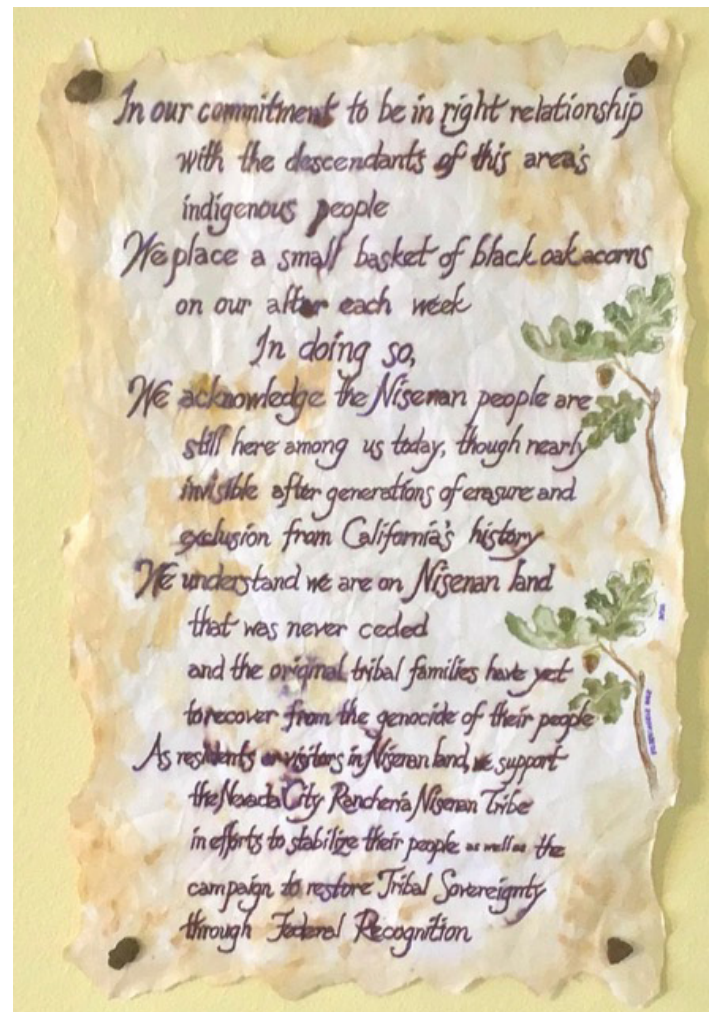 In our commitment to be in right relationship
with the descendants of this area's
indigenous people
We place a small basket of black oak acorns
on our alter each week
In doing so,
We acknowledge the Nisenan people are
still here among us today, though nearly
invisible after generations of erasure and
exclusion from California's history
We understand we are on Nisenan land
that was never ceded
and the original tribal families have yet
to recover from the genocide of their people
As residents or visitors in Nisenan land, we support
the Nevada City Rancheria Nisenan Tribe
in efforts to stabilize their people as well as the
campaign to restore Tribal Sovereignty
through Federal Recognition